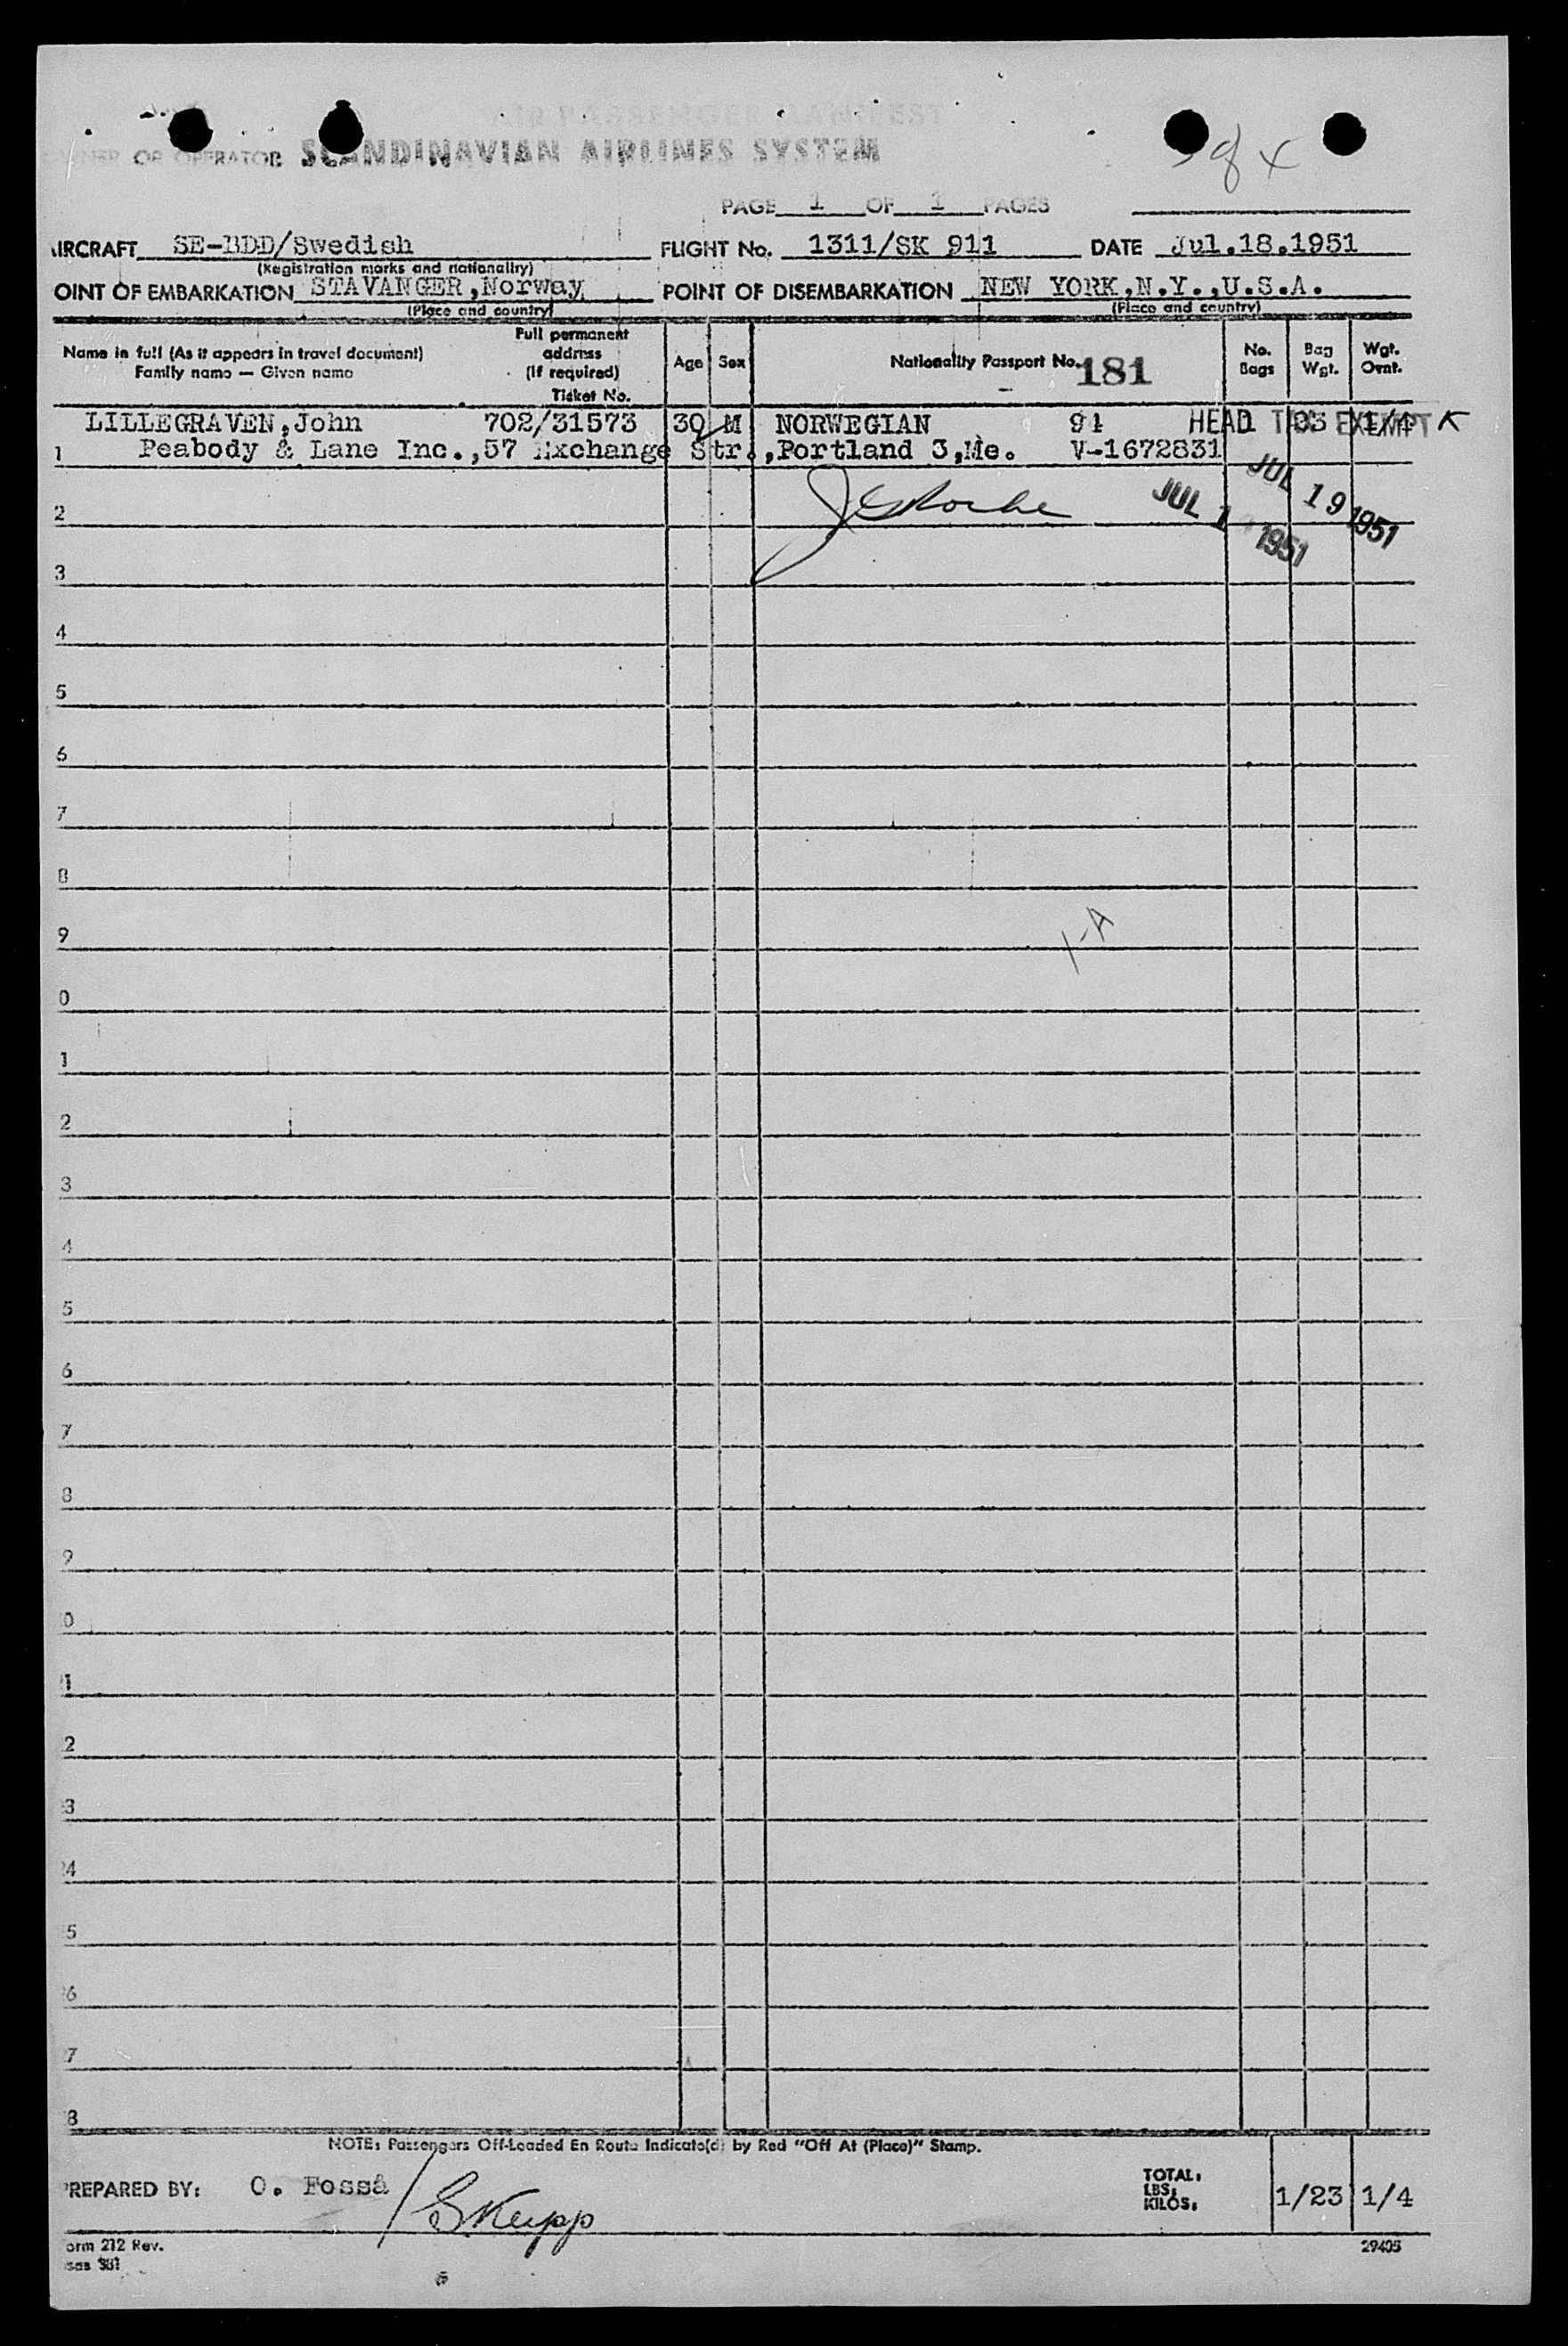 AIR PASSENGER MANIFEST
OWNER OR OPERATOR SCANDINAVIAN AIRLINES SYSTEM
PAGE 1 OF 1 PAGES
AIRCRAFT SE-BDD/Swedish FLIGHT No. 1311/SK 911 DATE Jul.18.1951
(Registration marks and nationality)
OINT OF EMBARKATION STAVANGER,Norway POINT OF DISEMBARKATION NEW YORK,N.Y.,U.S.A.
(Place and country) (Place and country)
Name in full (As it appears in travel document)
Family name — Given name
Full permanent
address
(If required)
Ticket No.
Age Sex Nationality Passport No. 181 No. Bags Bag Wgt. Wgt. Ovnt.
LILLEGRAVEN,John 702/31573 30 M NORWEGIAN 91 HEAD TAX EXEMPT
1 Peabody & Lane Inc.,57 Exchange Str.,Portland 3,Me. V-1672831
JUL 19 1951
2 JUL 1 1951
3
4
5
6
7
8
9
1-A
0
1
2
3
4
5
6
7
8
9
0
1
2
3
4
5
6
7
8
NOTE: Passengers Off-Loaded En Route Indicate(d) by Red "Off At (Place)" Stamp.
PREPARED BY: O. Fosså
TOTAL:
LBS:
KILOS:
1/23 1/4
orm 212 Rev.
sas 381
29405